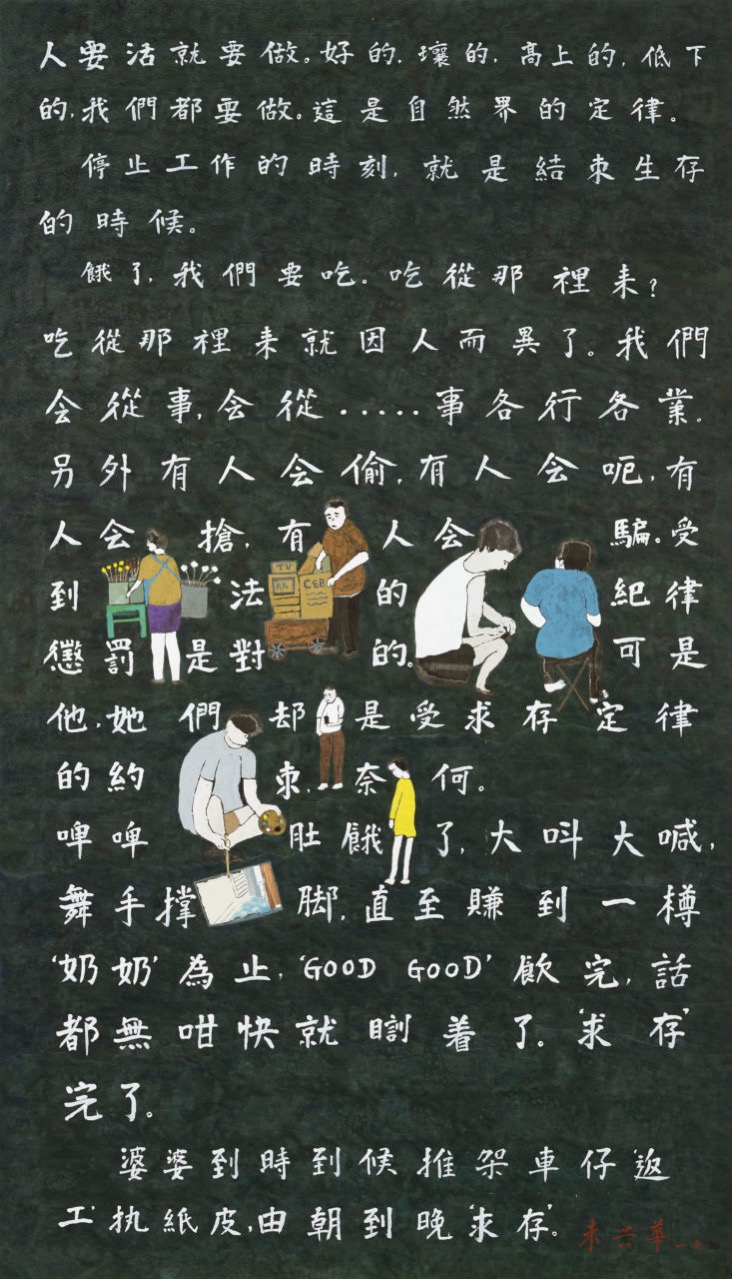 人要活就要做。好的,壞的,高上的,低下
的,我們都要做。這是自然界的定律。
停止工作的時刻,就是結束生存
的時候。
餓了,我們要吃。吃從那裡来?
吃從那裡来就因人而異了。我們
会從事,会從.....事各行各業。
另外有人会偷,有人会呃,有
人会搶,有人会騙。受
到法的紀律
懲罰是對的。可是
他,她們却是受求存定律
的約束,奈何。
啤啤肚餓了,大呌大喊,
舞手撑脚,直至賺到一樽
‘奶奶’為止,‘GOOD GOOD’飲完,話
都無咁快就瞓着了。‘求存’
完了。
婆婆到時到候推架車仔‘返
工’执紙皮,由朝到晚‘求存’。
TV
CEB